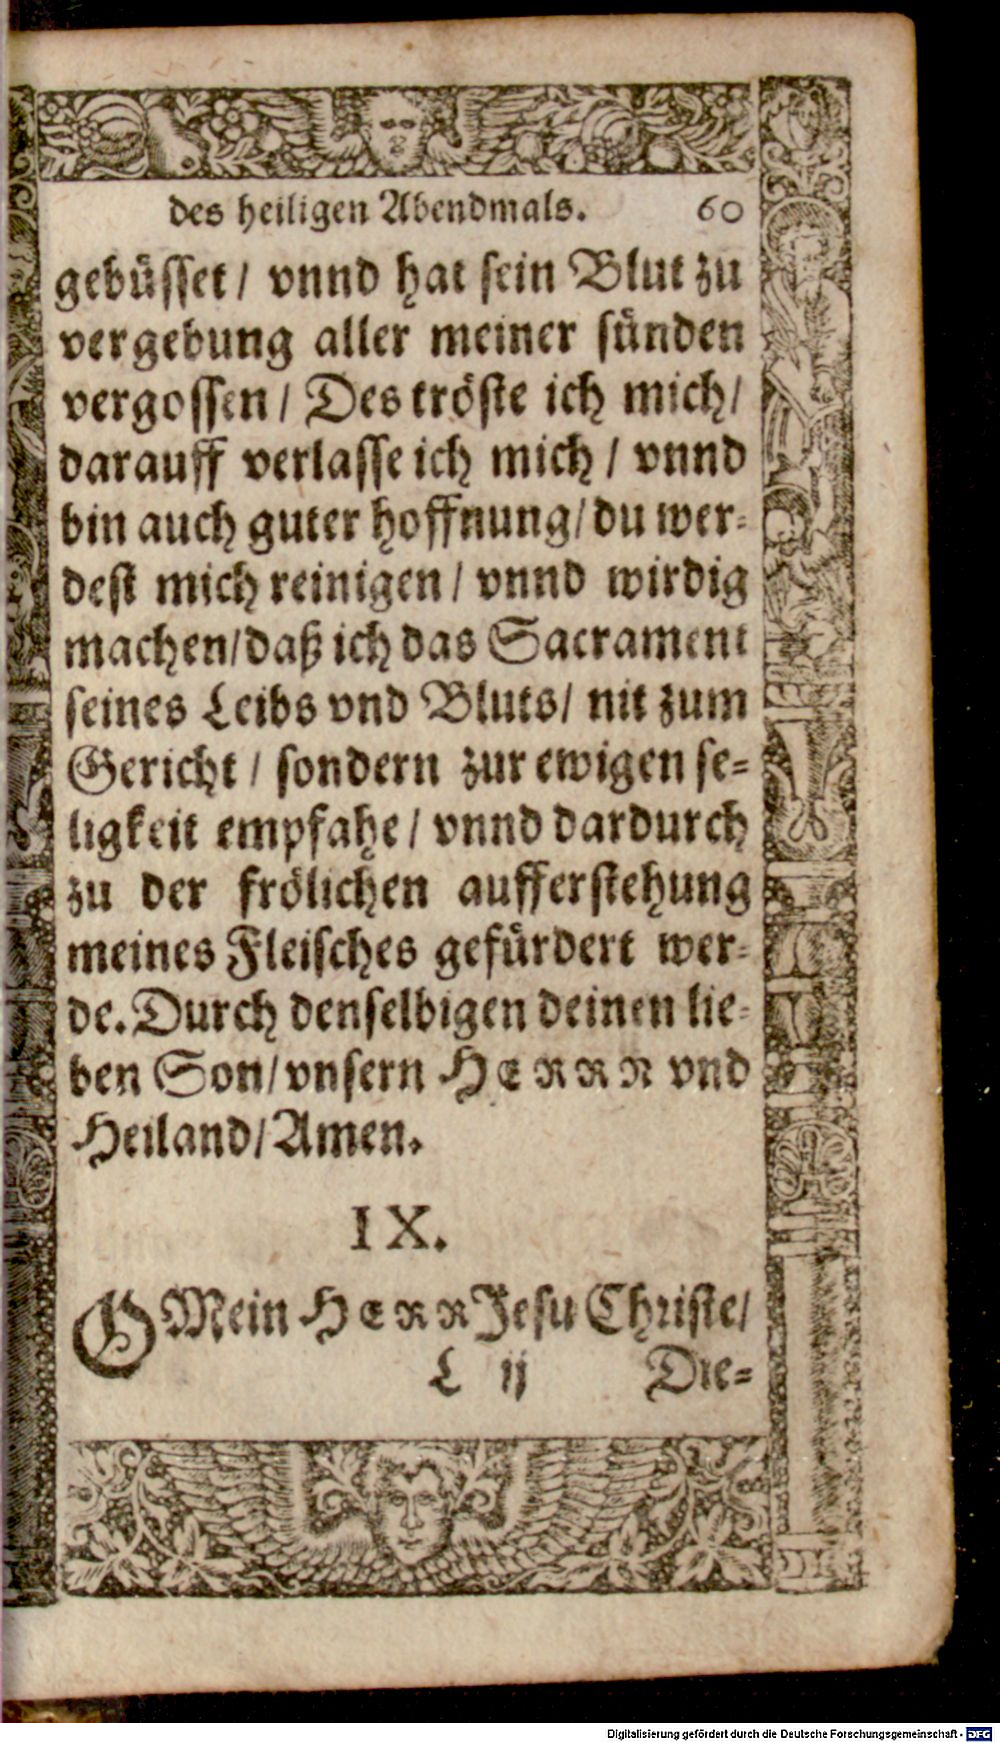 des heiligen Abendmals. 60
gebüsset / vnnd hat sein Blut zu
vergebung aller meiner sünden
vergossen / Des tröste ich mich /
darauff verlasse ich mich / vnnd
bin auch guter hoffnung / du wer-
dest mich reinigen / vnnd wirdig
machen / daß ich das Sacrament
seines Leibs vnd Bluts / nit zum
Gericht / sondern zur ewigen se-
ligkeit empfahe / vnnd dardurch
zu der frölichen aufferstehung
meines Fleisches gefürdert wer-
de. Durch denselbigen deinen lie-
ben Son / vnsern HERRN vnd
Heiland / Amen.
IX.
O Mein HERR Jesu Christe /
L ij Die-
Digitalisierung gefördert durch die Deutsche Forschungsgemeinschaft - DFG